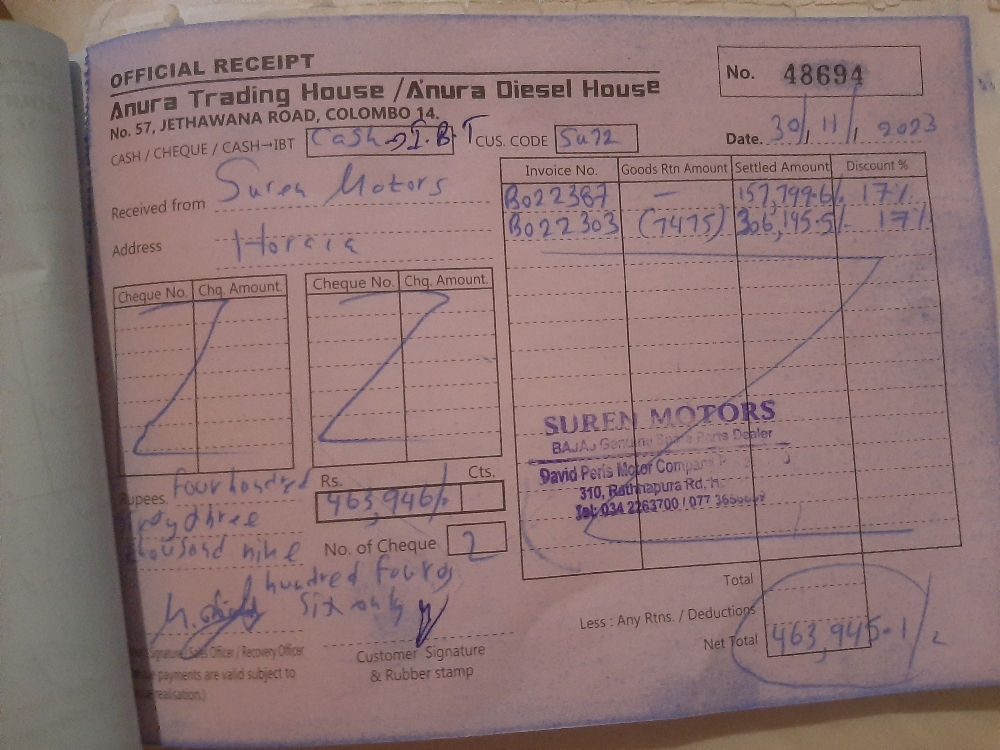 OFFICIAL RECEIPT
Anura Trading House / Anura Diesel House
No. 57, JETHAWANA ROAD, COLOMBO 14.
No. 48694
Date. 30/11/2023
CASH / CHEQUE / CASH→IBT Cash→I.B.T CUS. CODE Su72
Received from Suren Motors
Address
Invoice No. Goods Rtn Amount Settled Amount Discount %
B022387 — 157,799.6/. 17%
B022303 (7475) 306,195.5/- 17%
Cheque No. Chq. Amount. Cheque No. Chq. Amount.
SUREN MOTORS
BAJAJ Genuine Spare Parts Dealer
David Peris Motor Company
310, Rathnapura Rd,
Tel: 034 2263700 / 077
Rupees four hundred
three
thousand nine
hundred
six only
Rs. Cts.
463,946/.
No. of Cheque 2
Customer Signature
& Rubber stamp
Signature Sales Officer / Recovery Officer
payments are valid subject to
realisation.)
Total
Less : Any Rtns. / Deductions
Net Total 463,945-1